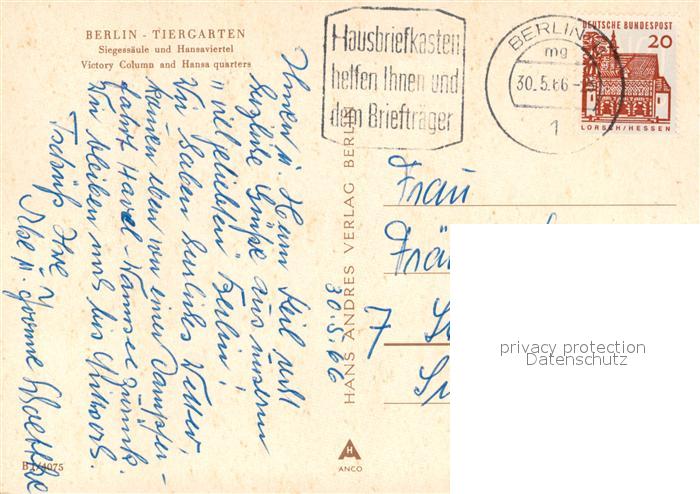 BERLIN - TIERGARTEN
Siegessäule und Hansaviertel
Victory Column and Hansa quarters
Hausbriefkasten
helfen Ihnen und
dem Briefträger
BERLIN
mg
30.5.66
1
DEUTSCHE BUNDESPOST
20
LORSCH/HESSEN
Ihnen u. Herrn Keil mit
herzliche Grüße aus unserem
"vielgeliebten" Berlin!
Wir haben herrliches Wetter,
kamen eben von einer Dampfer-
fahrt Havel-Wannsee zurück.
Wir bleiben noch bis Mittwoch.
Tschüß Ihre
Ilse u. Yvonne
30.5.66
HANS ANDRES VERLAG BERLIN
Frau
7
privacy protection
Datenschutz
H
ANCO